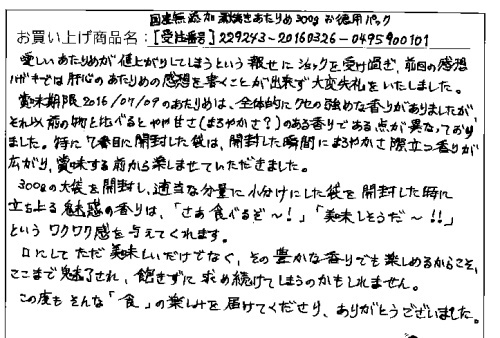 国産無添加素焼きあたりめ300gお徳用パック
お買い上げ商品名：[受注番号] 229243-20160326-0495900101
愛しいあたりめが値上がりしてしまうという報せにショックを受け過ぎ、前回の感想
ハガキでは肝心のあたりめの感想を書くことが出来ず大変失礼をいたしました。
賞味期限2016/07/09のあたりめは、全体的にクセの強めな香りがありましたが
それ以前の物と比べるとやや甘さ(まろやかさ?)のある香りである点が異なっており
ました。特に1番目に開封した袋は、開封した瞬間にまろやかさ際立つ香りが
広がり、賞味する前から楽しませていただきました。
300gの大袋を開封し、適当な分量に小分けにした袋を開封した時に
立ち上る魅惑の香りは、「さあ食べるぞ〜!」「美味しそうだ〜!!」
というワクワク感を与えてくれます。
口にしてただ美味しいだけでなく、その豊かな香りでも楽しめるからこそ、
ここまで魅了され、飽きずに求め続けてしまうのかもしれません。
この度もそんな「食」の楽しみを届けてくださり、ありがとうございました。